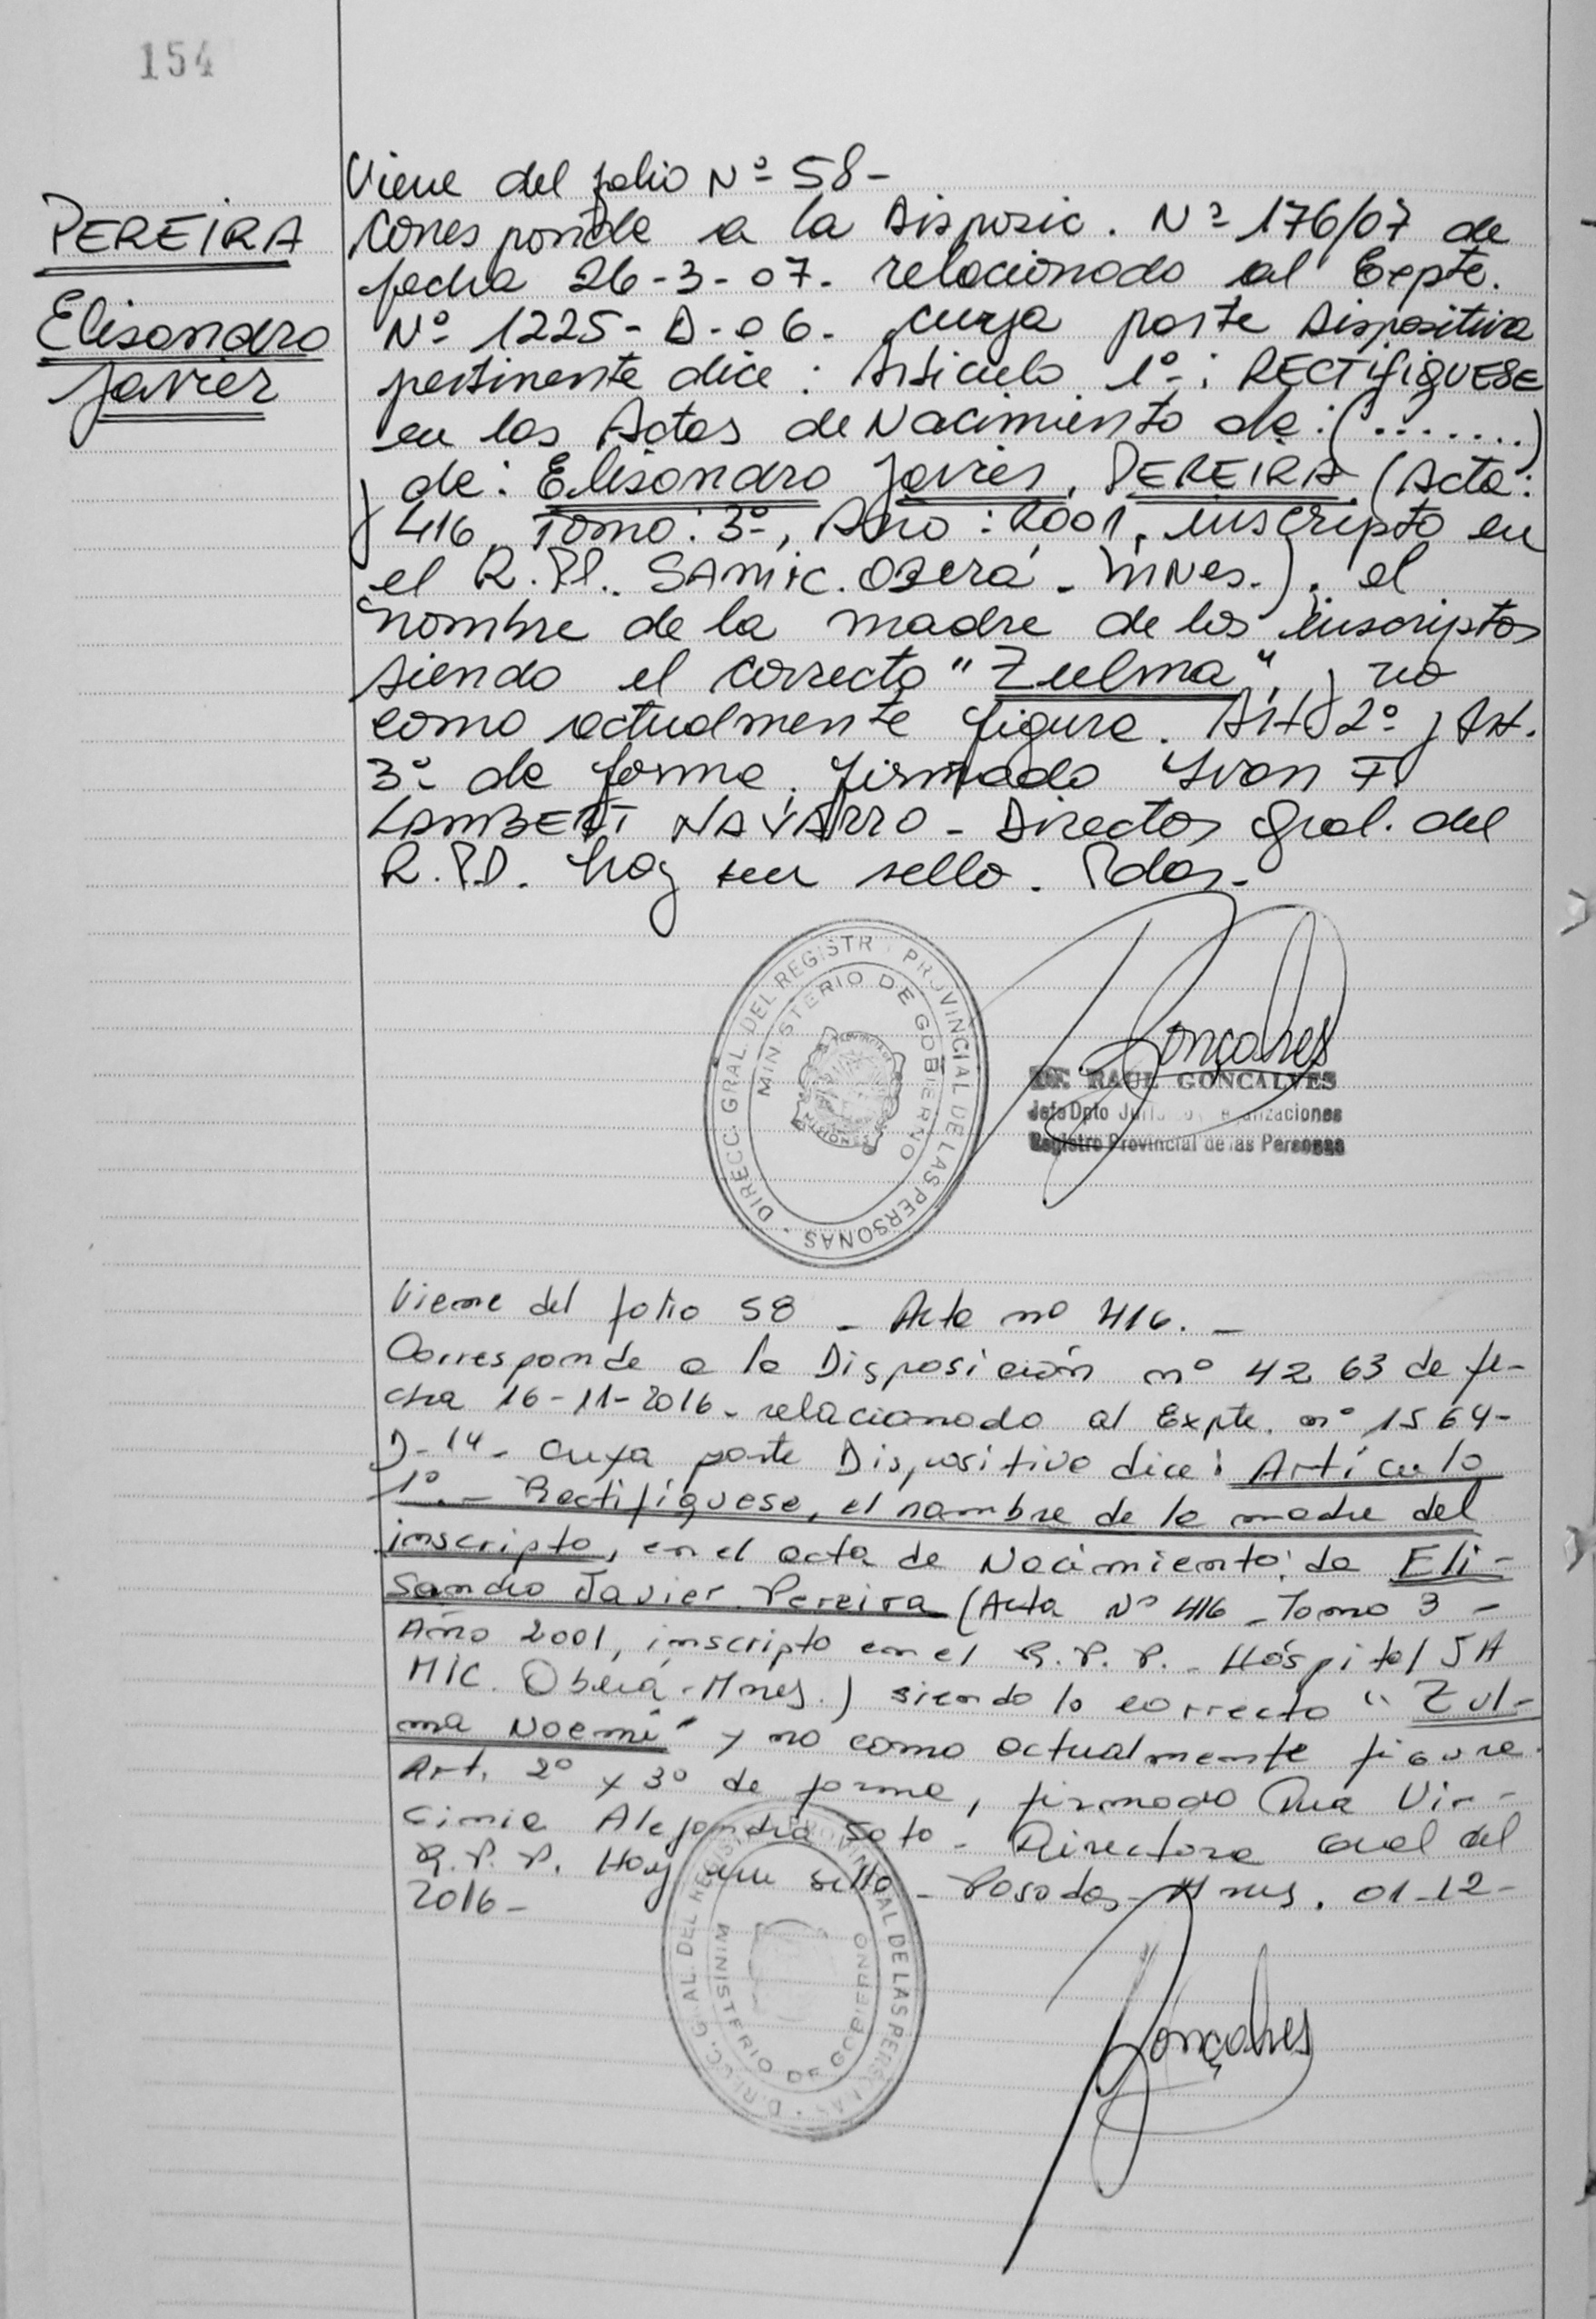 154
PEREIRA
Elisandro
Javier
Viene del folio Nº 58-
Corresponde a la Disposic. Nº 176/07 de
fecha 26-3-07. relacionado al Expte.
Nº 1225-D-06. cuya parte Dispositiva
pertinente dice: Articulo 1º: RECTIFIQUESE
en las Actas de Nacimiento de: (.......)
y de: Elisandro Javier. PEREIRA. (Acta:
416, Tomo: 3º, Año: 2001, inscripto en
el R.P.P. SAMIC. OBERÁ - MNes.). el
nombre de la madre de los inscriptos
siendo el correcto "Zulma", y no
como actualmente figura. Art 2º y Art.
3º de forma. firmado Ivan F.
LAMBERT NAVARRO - Director Gral. del
R.P.P. hay un sello. Pdas.-
DIRECC. GRAL. DEL REGISTR PROVINCIAL DE LAS PERSONAS
MINISTERIO DE GOBIERNO
PROVINCIA DE
MISIONES
Gonçalves
DR. RAUL GONCALVES
Jefe Dpto
Registro Provincial de las Personas
Viene del folio 58 - Acta nº 416.-
Corresponde a la Disposición nº 4263 de fe-
cha 16-11-2016- relacionado al Expte. nº 1564-
D-14- cuya parte Dispositiva dice: Artículo
1º.- Rectifiquese, el nombre de la madre del
inscripto, en el acta de Nacimiento: de Eli-
sandro Javier Pereira (Acta Nº 416 - Tomo 3 -
Año 2001, inscripto en el R.P.P. - Hóspital SA
MIC. Oberá-Mnes.) siendo lo correcto "Zul-
ma Noemi" y no como actualmente figura.
Art. 2º y 3º de forma, firmado Dra Vir-
ginia Alejandra Soto - Directora Gral del
R.P.P. Hay un sello - Posadas - Mnes. 01-12-
2016-
DIRECC. GRAL. DEL REGISTR PROVINCIAL DE LAS PERSONAS
MINISTERIO DE GOBIERNO
Gonçalves